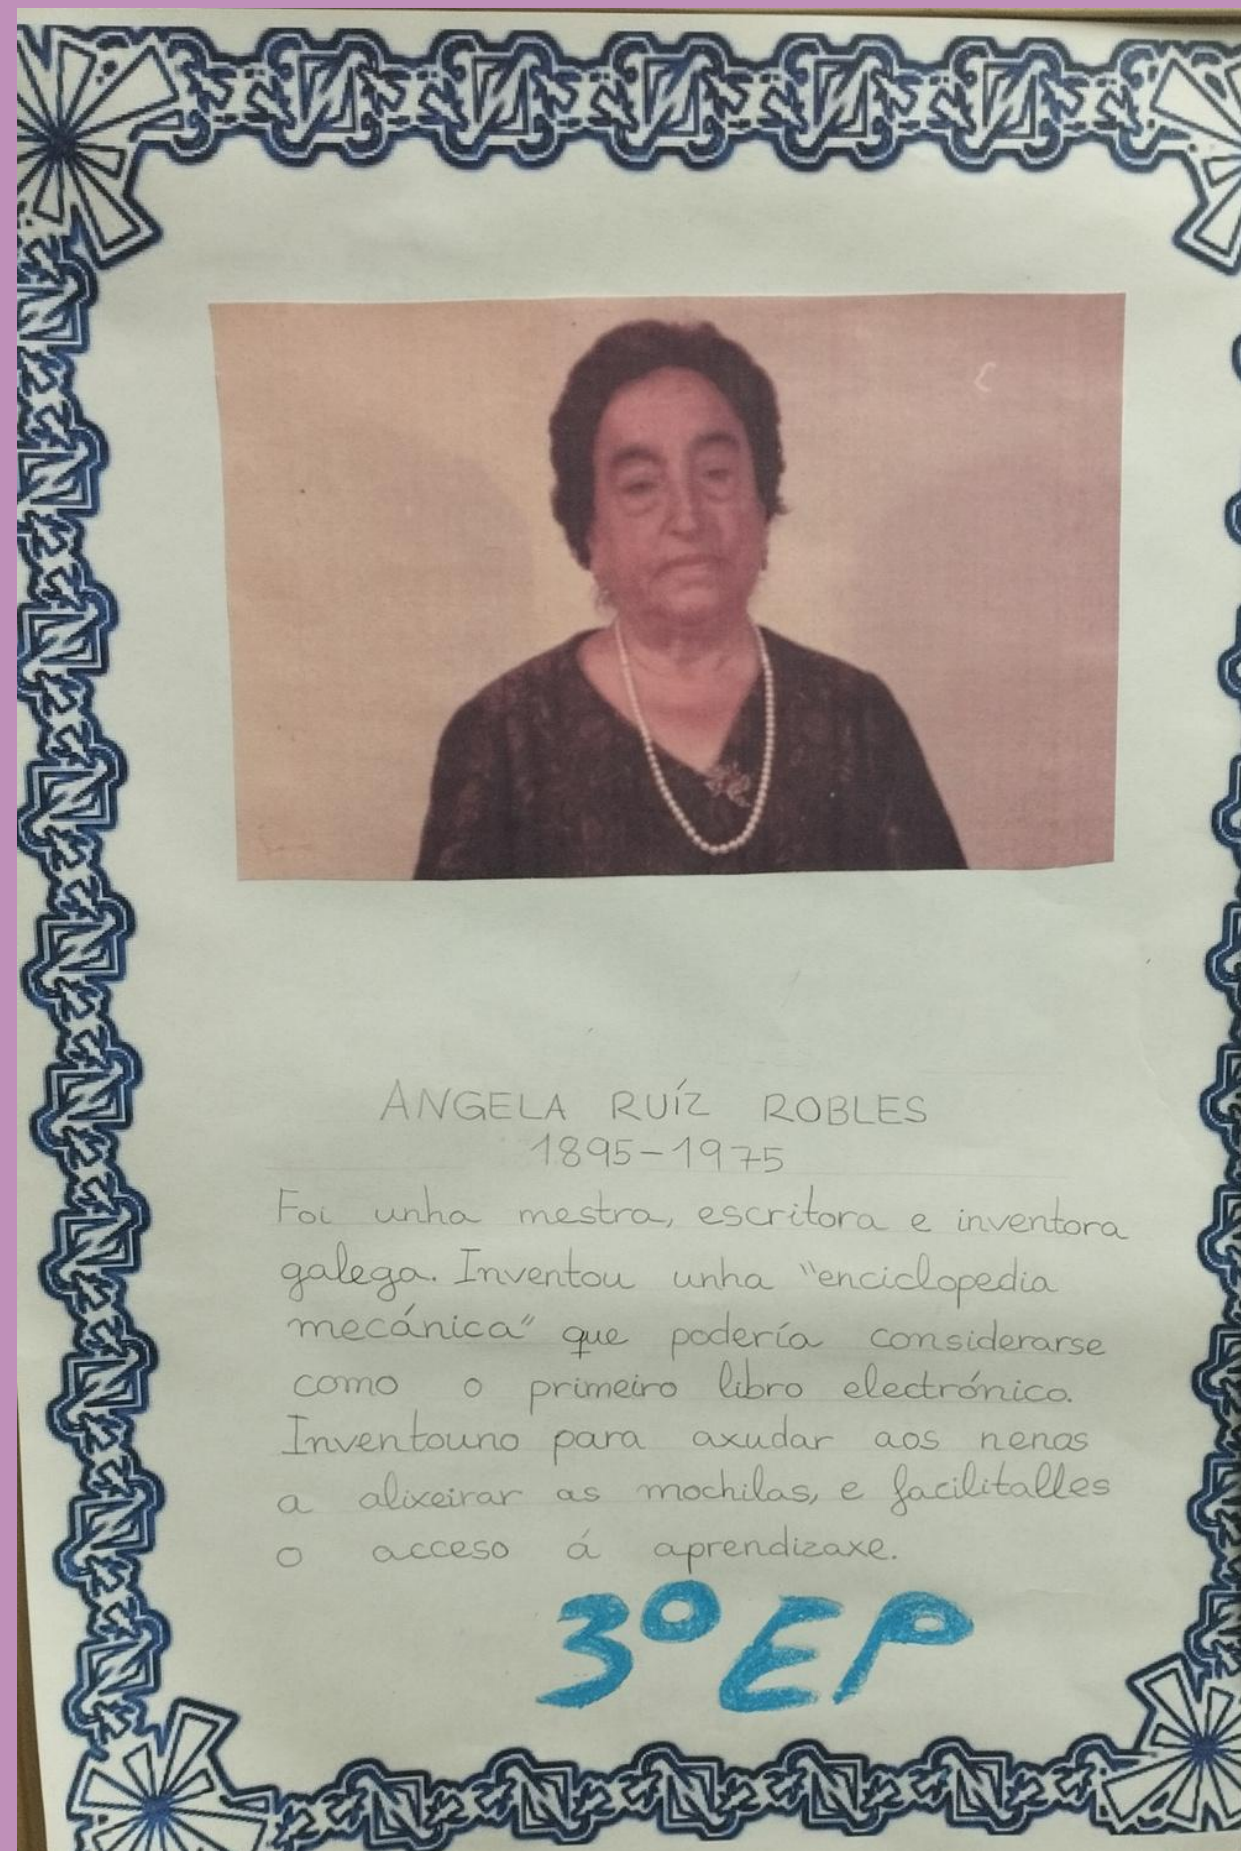 ANGELA RUÍZ ROBLES
1895-1975
Foi unha mestra, escritora e inventora
galega. Inventou unha "enciclopedia
mecánica" que podería considerarse
como o primeiro libro electrónico.
Inventouno para axudar aos nenos
a alixeirar as mochilas, e facilitalles
o acceso á aprendizaxe.
3º EP